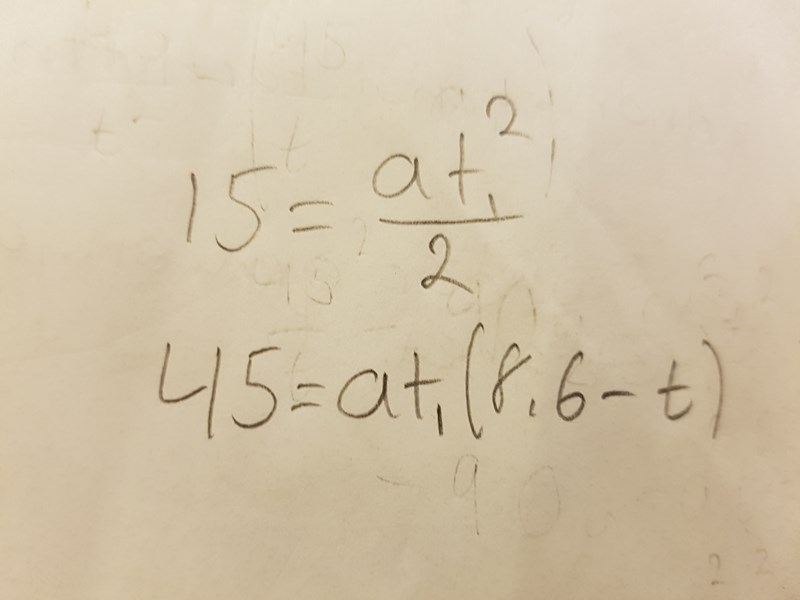 15 = at₁²/2
45 = at₁(8.6 - t)